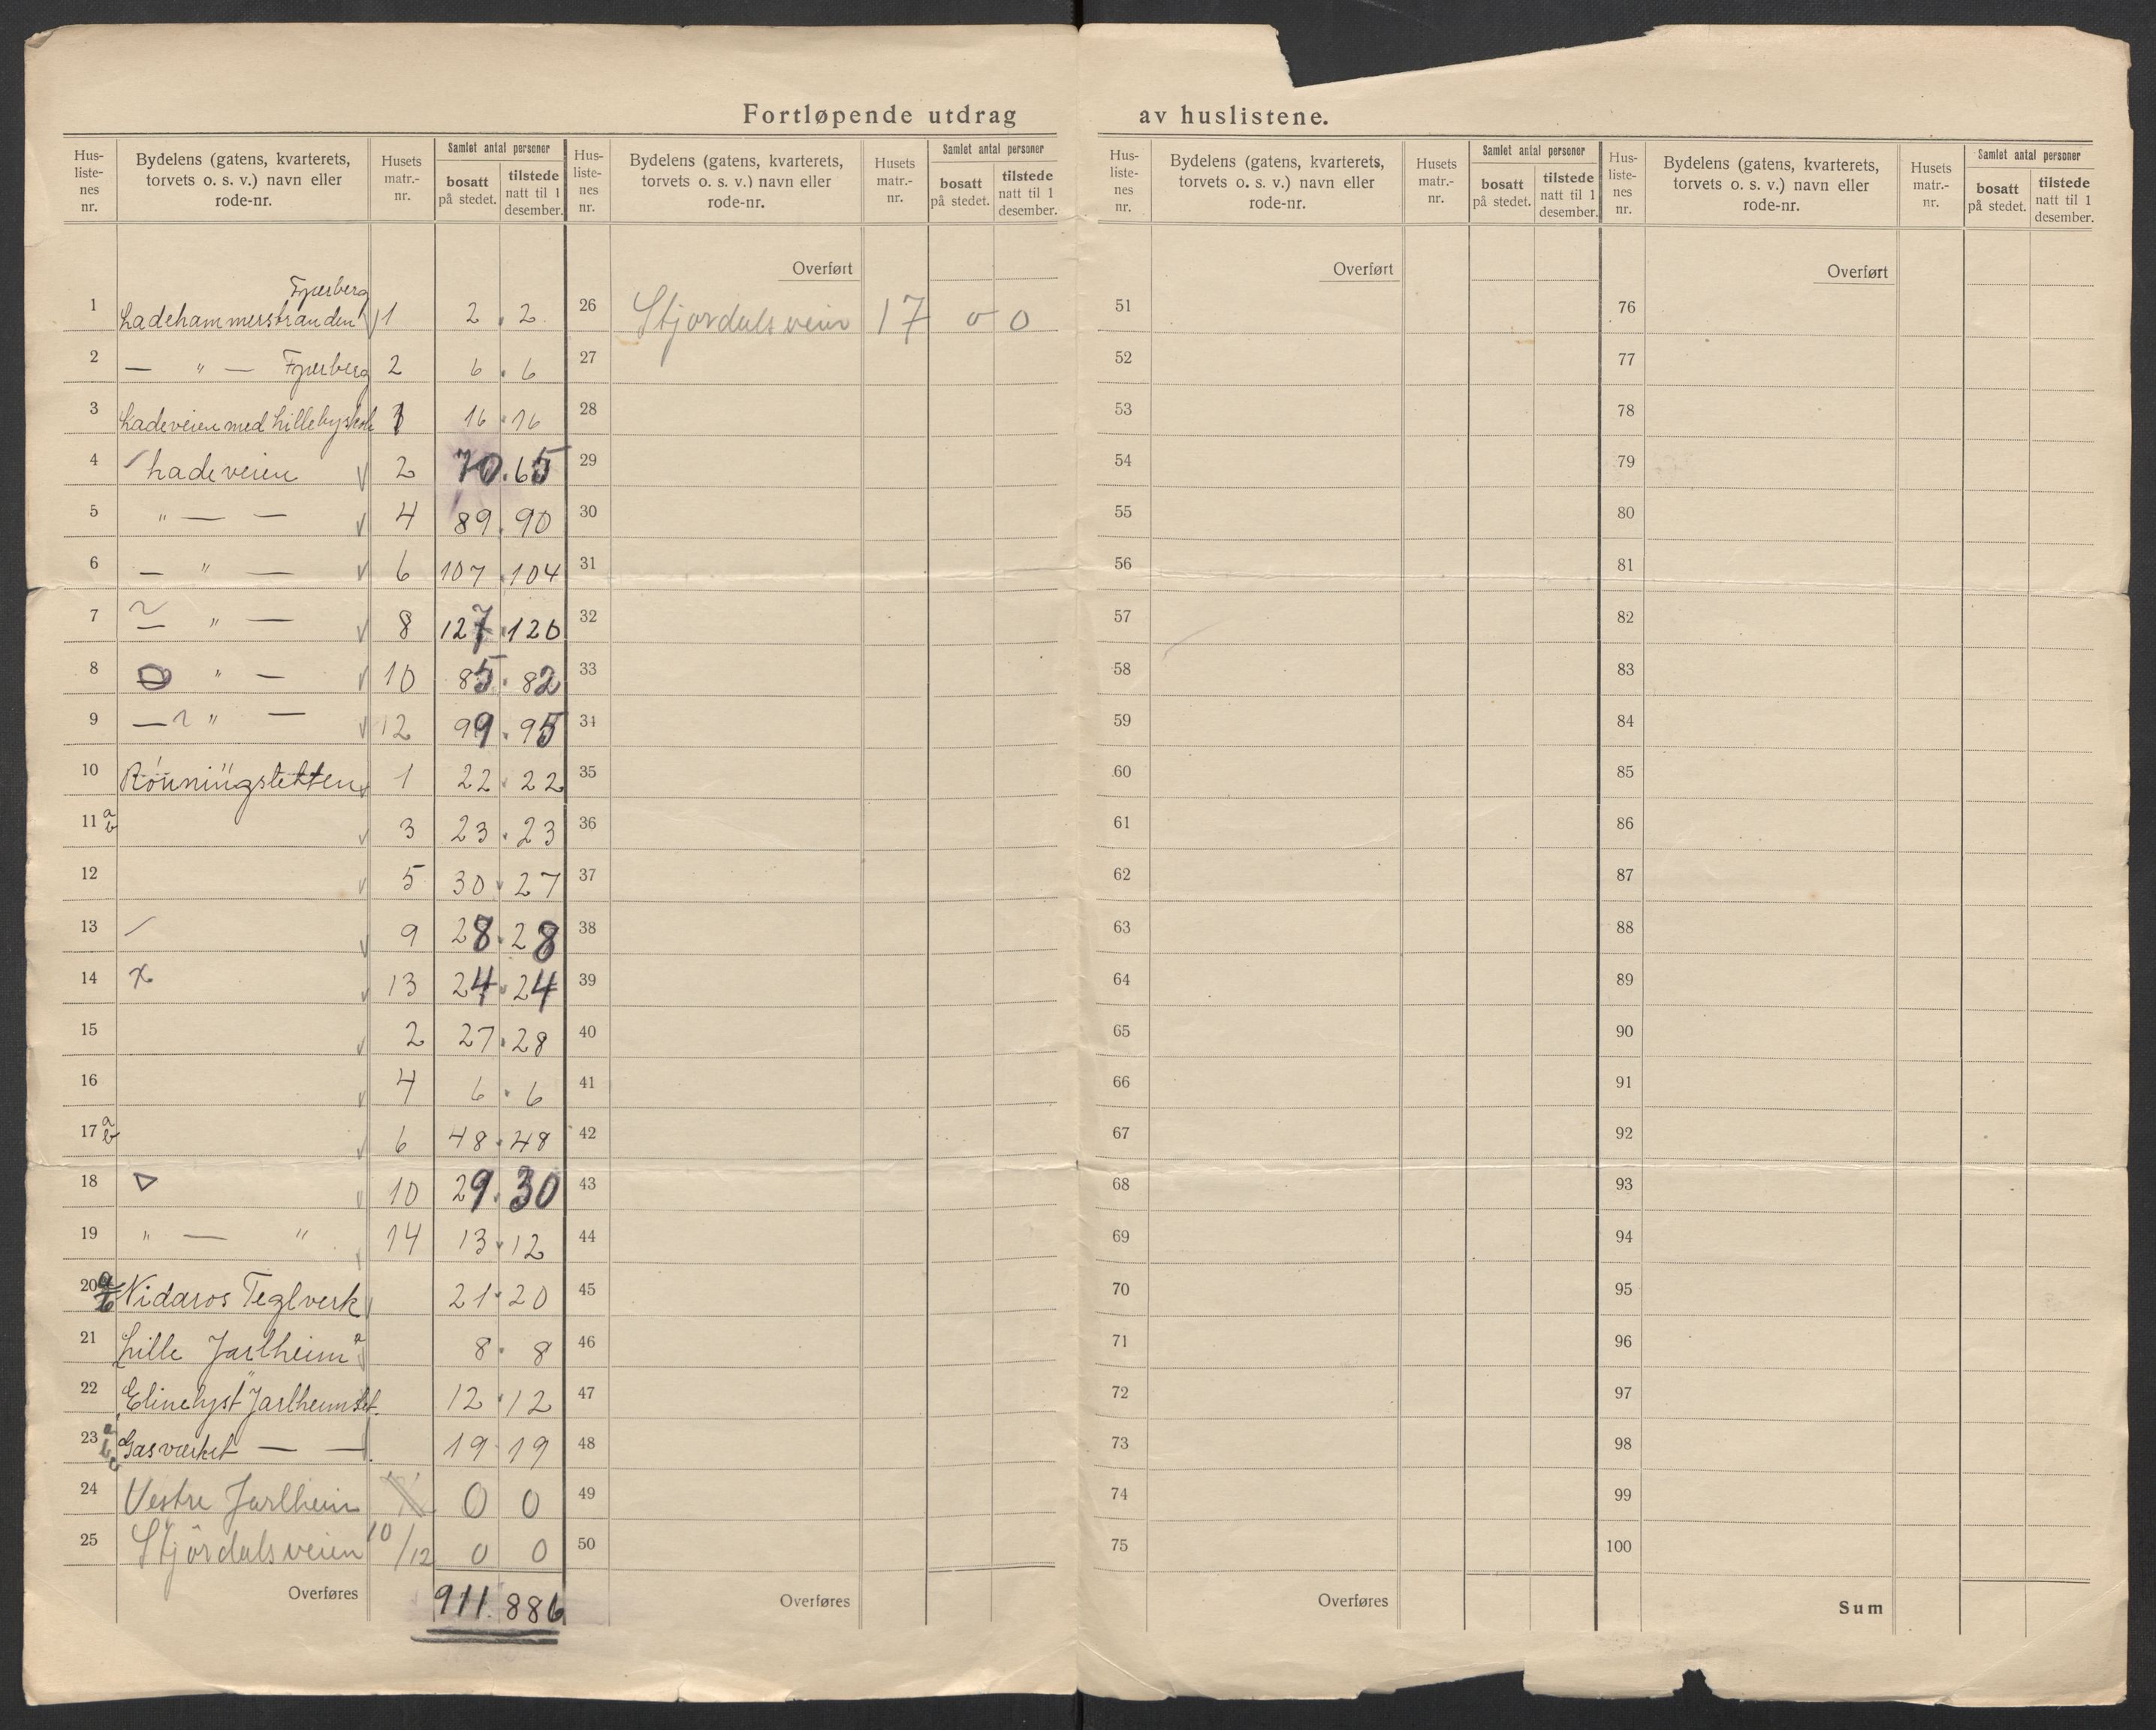 Fortløpende utdrag av huslistene.
Hus-listenes nr. | Bydelens (gatens, kvarterets, torvets o. s. v.) navn eller rode-nr. | Husets matr.-nr. | Samlet antal personer | bosatt på stedet. | tilstede natt til 1 desember.
Hus-listenes nr. | Bydelens (gatens, kvarterets, torvets o. s. v.) navn eller rode-nr. | Husets matr.-nr. | Samlet antal personer | bosatt på stedet. | tilstede natt til 1 desember.
Hus-listenes nr. | Bydelens (gatens, kvarterets, torvets o. s. v.) navn eller rode-nr. | Husets matr.-nr. | Samlet antal personer | bosatt på stedet. | tilstede natt til 1 desember.
Hus-listenes nr. | Bydelens (gatens, kvarterets, torvets o. s. v.) navn eller rode-nr. | Husets matr.-nr. | Samlet antal personer | bosatt på stedet. | tilstede natt til 1 desember.
Fjærberg
1 Ladehammerstranden 1 2 2
2 — " — Fjærberg 2 6 6
3 Ladeveien med Lilleby skole 1 16 16
4 Ladeveien 2 70 65
5 " — — 4 89 90
6 — " — 6 107 104
7 — " — 8 127 120
8 " — 10 85 82
9 — " — 12 99 95
10 Rönningsletten 1 22 22
11 a b 3 23 23
12 5 30 27
13 9 28 28
14 x 13 24 24
15 2 27 28
16 4 6 6
17 a b 6 48 48
18 10 29 30
19 " — " 14 13 12
20 a b Nidaros Teglverk 21 20
21 Lille Jarlheim 8 8
22 Elinelyst Jarlheimslet. 12 12
23 a b c Gasværket — — 19 19
24 Vestre Jarlheim 0 0
25 Stjördalsveien 10/12 0 0
Overføres 911 886
Overført
26 Stjørdalsveien 17 0 0
27
28
29
30
31
32
33
34
35
36
37
38
39
40
41
42
43
44
45
46
47
48
49
50
Overføres
Overført
51
52
53
54
55
56
57
58
59
60
61
62
63
64
65
66
67
68
69
70
71
72
73
74
75
Overføres
Overført
76
77
78
79
80
81
82
83
84
85
86
87
88
89
90
91
92
93
94
95
96
97
98
99
100
Sum